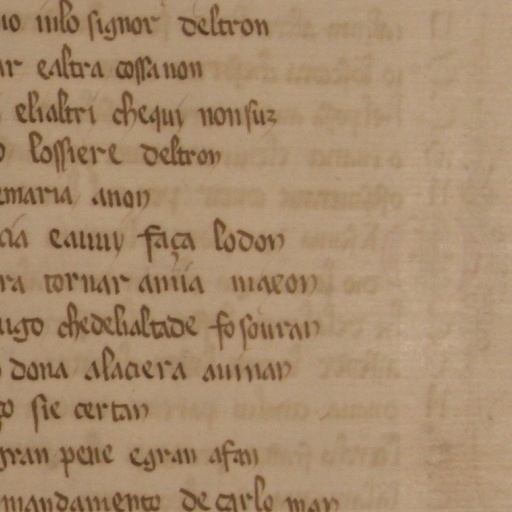 io inlo signor deltron
ar ealtra cossa non
elialtri chequi non suz
o lossiere deltron
emaria anon
cia eauuy faça lodon
ra tornar amia maxon
ugo chedelialtade fo souran
dona alaciera auinan
go sie certan
gran pene egran afan
mandamento de carlo man